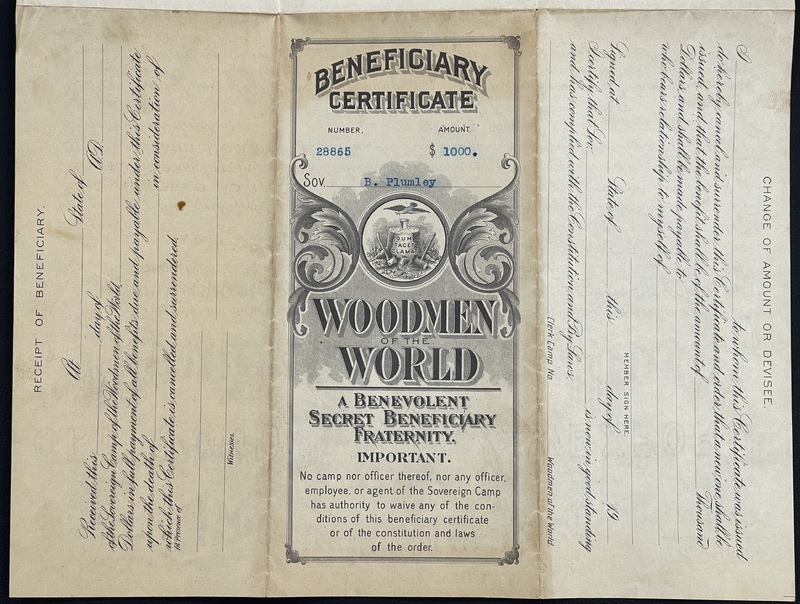 RECEIPT OF BENEFICIARY.
At
State of
Received this day of A.D.
of the Sovereign Camp of the Woodmen of the World,
Dollars in full payment of all benefits due and payable under this Certificate
upon the death of in consideration of
which this Certificate is cancelled and surrendered.
In Presence of
Witnesses.
BENEFICIARY
CERTIFICATE
NUMBER. AMOUNT.
28865 $ 1000.
Sov. B. Plumley
DUM
TACET
CLAMAT
WOODMEN
OF THE
WORLD
A BENEVOLENT
SECRET BENEFICIARY
FRATERNITY.
IMPORTANT.
No camp nor officer thereof, nor any officer,
employee, or agent of the Sovereign Camp
has authority to waive any of the con-
ditions of this beneficiary certificate
or of the constitution and laws
of the order.
CHANGE OF AMOUNT OR DEVISEE.
I to whom this Certificate was issued
do hereby cancel and surrender this Certificate and order that a new one shall be
issued, and that the benefit shall be of the amount of Thousand
Dollars, and shall be made payable to
who bears relationship to myself of
MEMBER SIGN HERE.
Signed at State of this day of 19
I certify that Sov. is now in good standing
and has complied with the Constitution and By Laws.
Clerk Camp No. Woodmen of the World